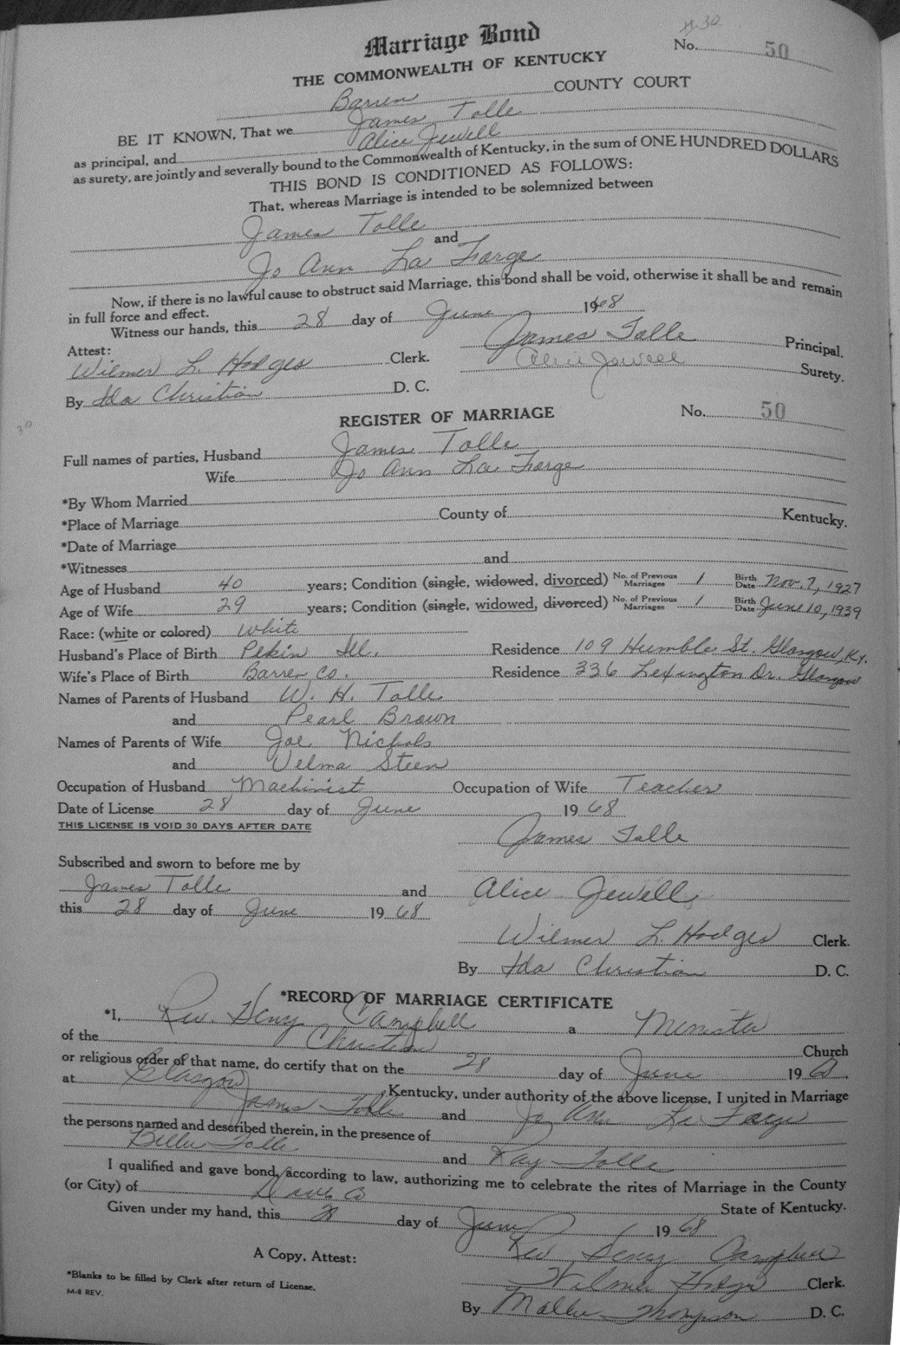 No. 50
Marriage Bond
THE COMMONWEALTH OF KENTUCKY
Barren COUNTY COURT
BE IT KNOWN, That we James Tolle
as principal, and Alice Jewell
as surety, are jointly and severally bound to the Commonwealth of Kentucky, in the sum of ONE HUNDRED DOLLARS
THIS BOND IS CONDITIONED AS FOLLOWS:
That, whereas Marriage is intended to be solemnized between
James Tolle
and
Jo Ann La Farge
Now, if there is no lawful cause to obstruct said Marriage, this bond shall be void, otherwise it shall be and remain
in full force and effect.
Witness our hands, this 28 day of June 1968
Attest: James Tolle Principal.
Wilmer L. Hodges Clerk. Alice Jewell Surety.
By Ida Christian D. C.
REGISTER OF MARRIAGE No. 50
30
Full names of parties, Husband James Tolle
Wife Jo Ann La Farge
*By Whom Married
*Place of Marriage County of Kentucky.
*Date of Marriage
*Witnesses and
Age of Husband 40 years; Condition (single, widowed, divorced) No. of Previous Marriages 1 Birth Date Nov. 7, 1927
Age of Wife 29 years; Condition (single, widowed, divorced) No. of Previous Marriages 1 Birth Date June 10, 1939
Race: (white or colored) White
Husband's Place of Birth Pekin Ill. Residence 109 Humble St. Glasgow, Ky.
Wife's Place of Birth Barren Co. Residence 336 Lexington Dr. Glasgow
Names of Parents of Husband W. H. Tolle
and Pearl Brown
Names of Parents of Wife Joe Nichols
and Velma Steen
Occupation of Husband Machinist Occupation of Wife Teacher
Date of License 28 day of June 1968
THIS LICENSE IS VOID 30 DAYS AFTER DATE
James Tolle
Subscribed and sworn to before me by
James Tolle and Alice Jewell
this 28 day of June 1968
Wilmer L. Hodges Clerk.
By Ida Christian D. C.
*RECORD OF MARRIAGE CERTIFICATE
*I, Rev. Campbell a Minister
of the Christian Church
or religious order of that name, do certify that on the 28 day of June 19
at Glasgow, Kentucky, under authority of the above license, I united in Marriage
James Tolle and Jo Ann La Farge
the persons named and described therein, in the presence of
Billie Tolle and Ray Tolle
I qualified and gave bond, according to law, authorizing me to celebrate the rites of Marriage in the County
(or City) of State of Kentucky.
Given under my hand, this 28 day of June 1968
Rev Campbell
A Copy, Attest:
Wilmer Hodges Clerk.
*Blanks to be filled by Clerk after return of License.
M-8 REV.
By Mollie Thompson D. C.